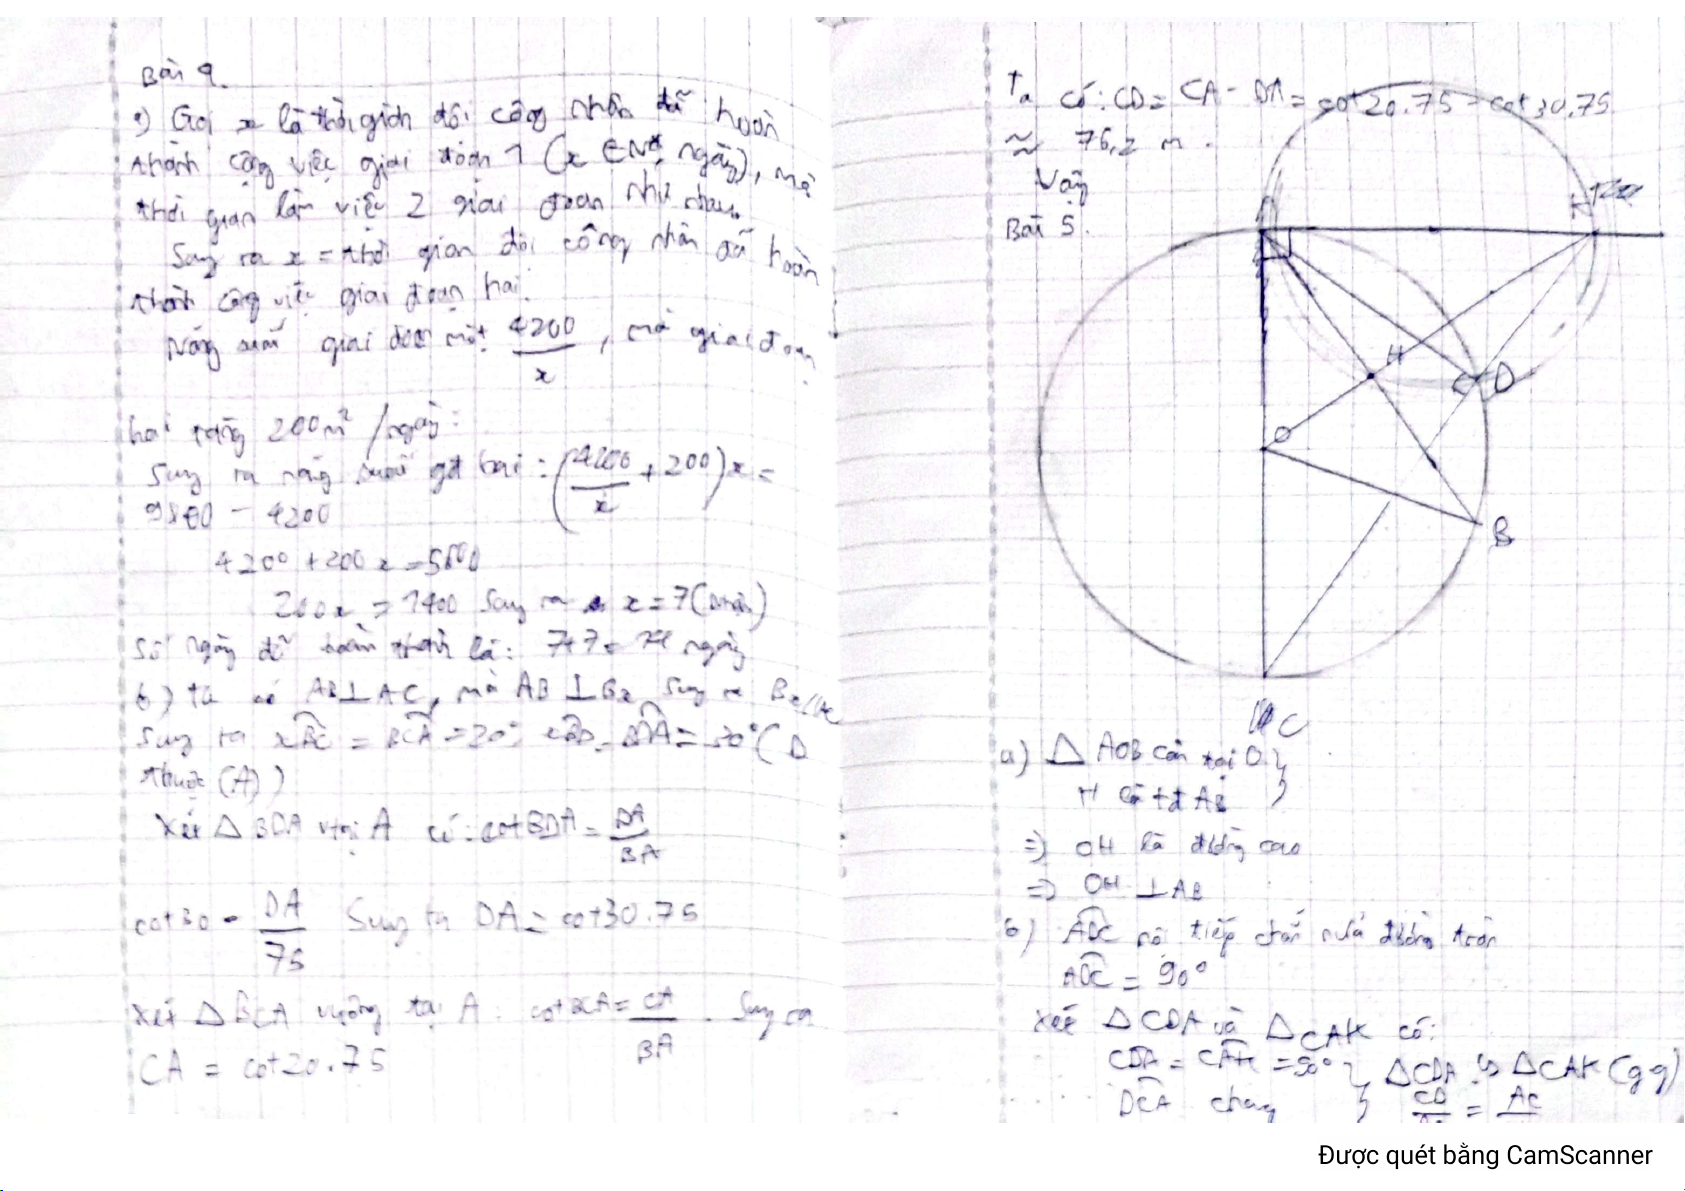 Bài 4.
a) Gọi x là thời gian đội công nhân đã hoàn
thành công việc giai đoạn 1 (x ∈ N*, ngày), mà
thời gian làm việc 2 giai đoạn như nhau.
Suy ra x = thời gian đội công nhân đã hoàn
thành công việc giai đoạn hai.
Năng suất giai đoạn một 4200/x, mà giai đoạn
hai tăng 200m² /ngày:
Suy ra năng suất gđ hai: (4200/x + 200)x =
9800 - 4200
4200 + 200x = 5600
200x = 1400 Suy ra x = 7 (nhận)
Số ngày để hoàn thành là: 7+7 = 14 ngày
b) ta có AB ⊥ AC, mà AB ⊥ Bx suy ra Bx // AC
Suy ra xBC = BCA = 20°; xBD = BDA = 30° (D
thuộc (A))
Xét △ BDA v tại A có: cot BDA = DA/BA
cot 30 = DA/75 Suy ra DA = cot 30.75
Xét △ BCA vuông tại A: cot BCA = CA/BA. Suy ra
CA = cot 20.75
Ta có: CD = CA - DA = cot 20.75 - cot 30.75
≈ 76,2 m.
Vậy
Bài 5.
H
D
O
B
C
a) △ AOB cân tại O }
H là tđ AB }
=> OH là đường cao
=> OH ⊥ AB
b) ADC nội tiếp chắn nửa đường tròn
ADC = 90°
Xét △ CDA và △ CAK có:
CDA = CAK = 90° } △CDA ∽ △CAK (gg)
DCA chung } CD = AC
Được quét bằng CamScanner